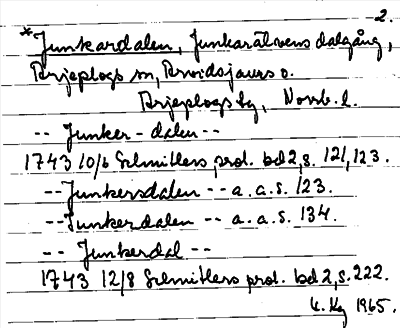 2.
*Junkardalen, Junkarälvens dalgång,
Arjeplogs sn, Arvidsjaurs o.
Arjeplogs tg, Norrb. l.
-- Junker-dalen --
1743 10/6 Schnitlers prot. bd 2, s. 121, 123.
-- Junkersdalen -- a.a.s. 123.
-- Junkerdalen -- a.a.s. 134.
-- Junkerdal --
1743 12/8 Schnitlers prot. bd 2, s. 222.
1965.